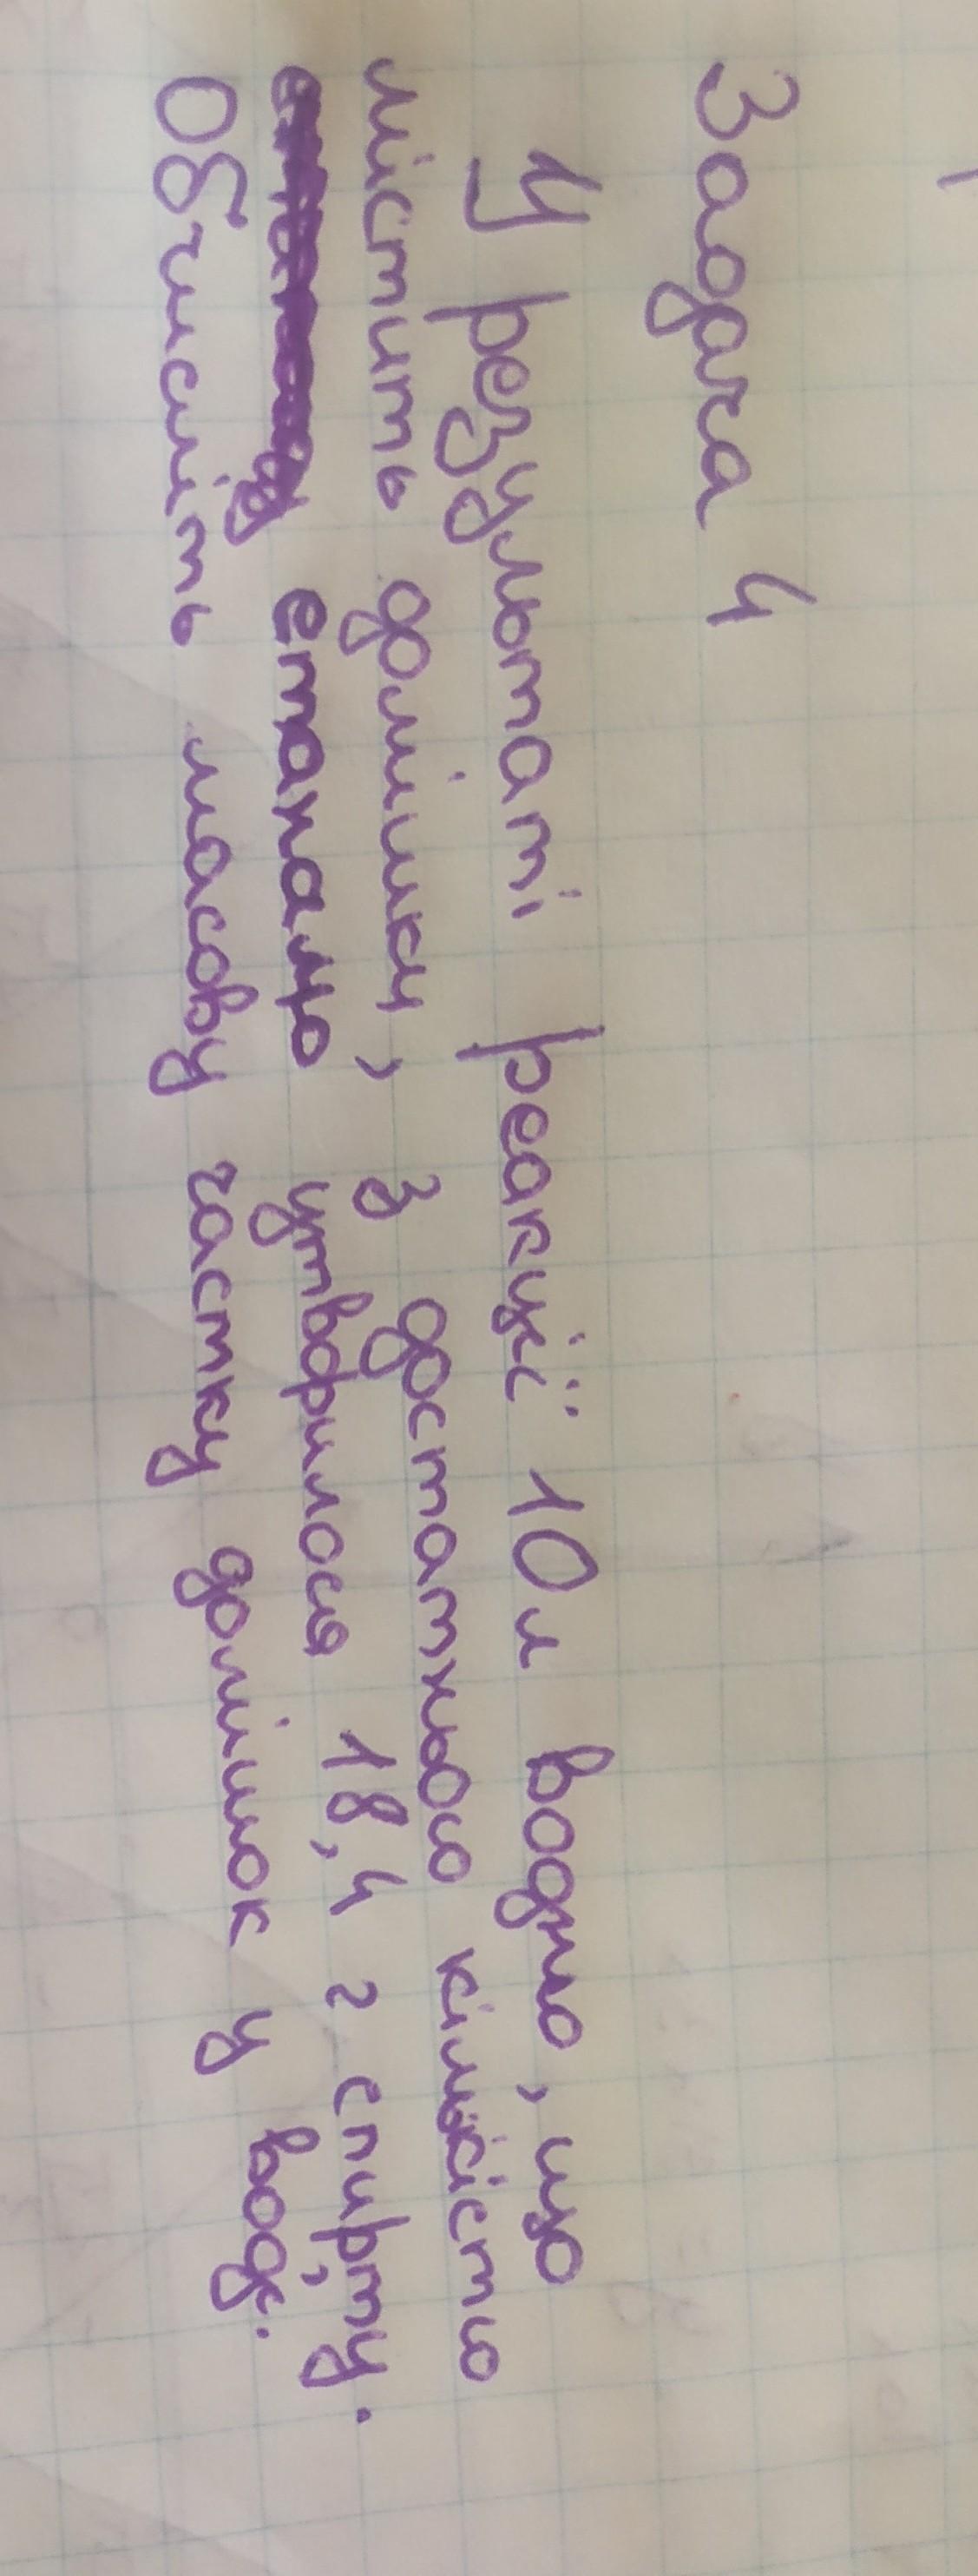 Задача 4
У результаті реакції 10л водню, що
містить домішки, з достатньою кількістю
етаналю утворилося 18,4 г спирту.
Обчисліть масову частку домішок у водн.